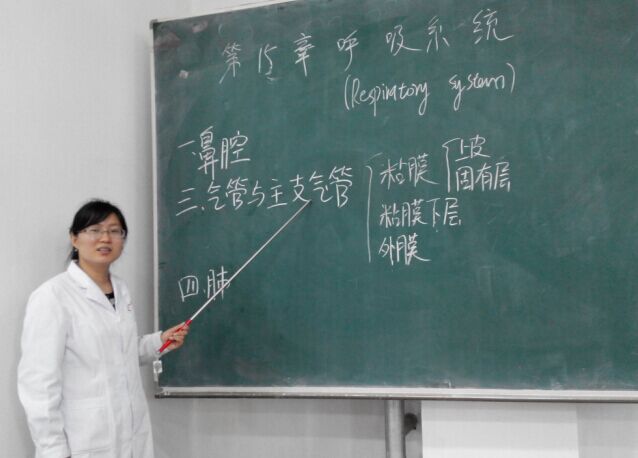 第15章呼吸系统
(Respiratory system)
一.鼻腔
三.气管与主支气管
粘膜
上皮
固有层
粘膜下层
外膜
四.肺